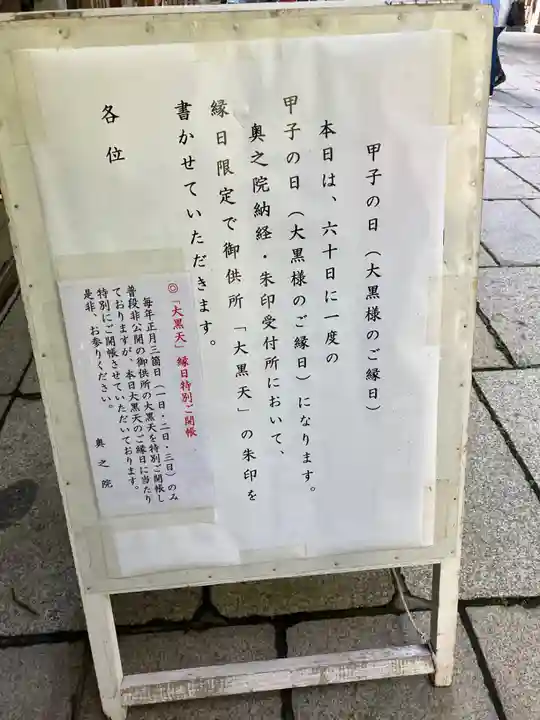 甲子の日(大黒様のご縁日)
本日は、六十日に一度の
甲子の日(大黒様のご縁日)になります。
奥之院納経・朱印受付所において、
縁日限定で御供所「大黒天」の朱印を
書かせていただきます。
各位
◎「大黒天」縁日特別ご開帳
毎年正月三箇日(一日・二日・三日)のみ
普段非公開の御供所の大黒天を特別ご開帳し
ておりますが、本日大黒天のご縁日に当たり
特別にご開帳させていただいております。
是非、お参りください。
奥之院